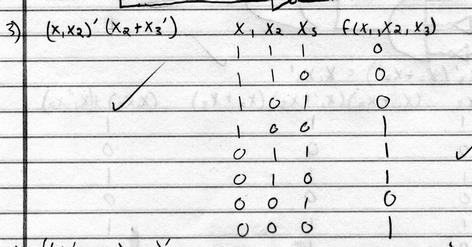 3) (x₁x₂)' (x₂+x₃') x₁ x₂ x₃ f(x₁,x₂,x₃)
1 1 1 0
1 1 0 0
1 0 1 0
1 0 0 1
0 1 1 1
0 1 0 1
0 0 1 0
0 0 0 1